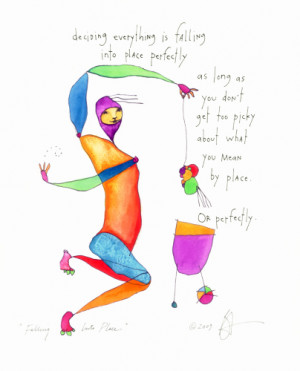 deciding everything is falling
into place perfectly
as long as
you don't
get too picky
about what
you mean
by place.
Or perfectly.
"Falling Into Place"
© 2009